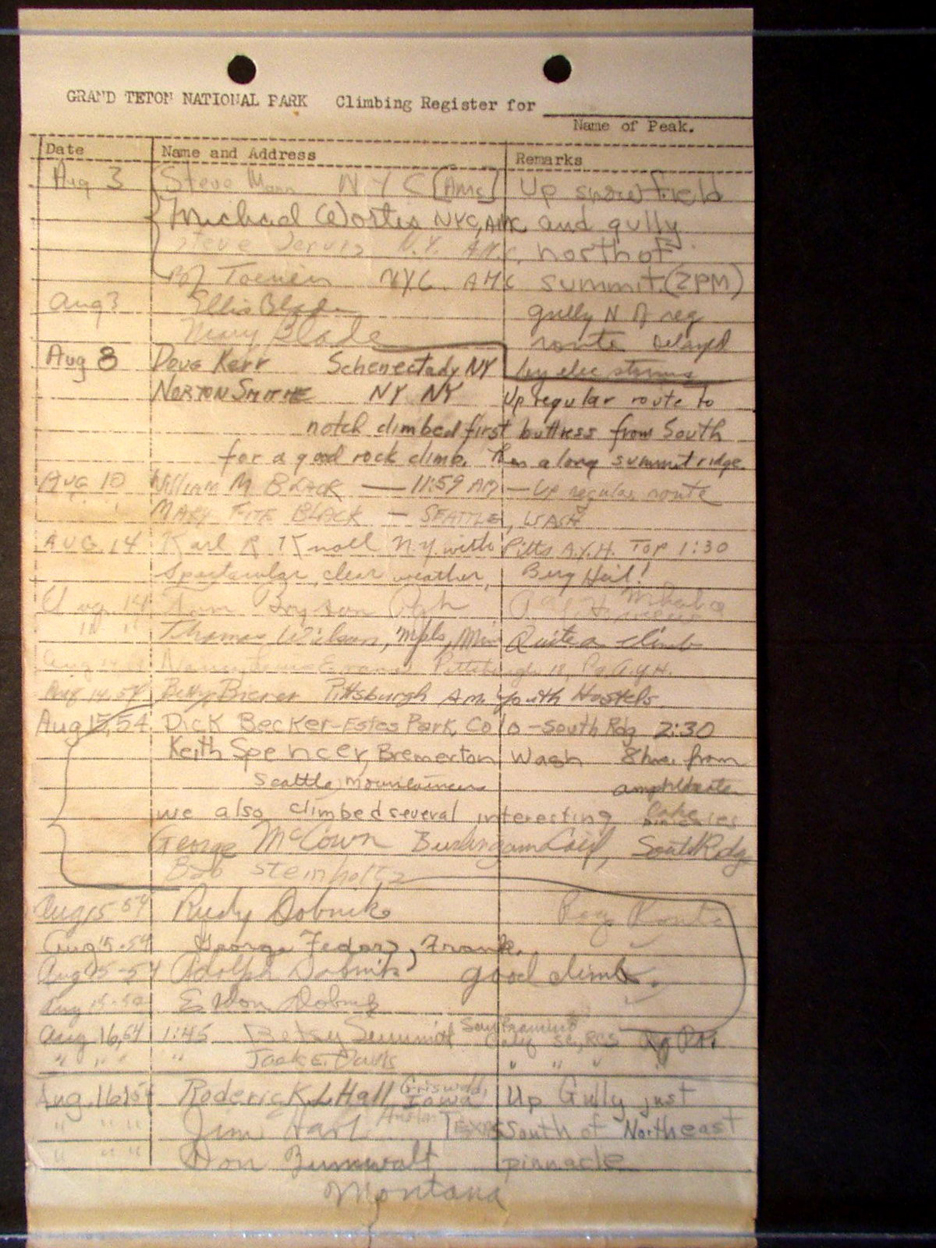 GRAND TETON NATIONAL PARK Climbing Register for
Name of Peak.
Date Name and Address Remarks
Aug 3 Steve Mann NYC [AMC] Up snowfield
Michael Wortis NYC, AMC and gully
Steve Jervis N.Y. AMC, north of
NYC. AMC summit. (2PM)
Aug 3 Ellis Blade gully N of reg
Mary Blade route Delayed
Aug 8 Doug Kerr Schenectady NY by elec storms
NORTON SMITHE NY NY Up regular route to
notch climbed first buttress from South
for a good rock climb. Then along summit ridge.
AUG 10 William M BLACK — 11:59 AM — Up regular route
MARY FITE BLACK — SEATTLE, WASH
AUG. 14 Karl R Knoll N.Y. with Pitts A.Y.H. TOP 1:30
Spectacular, clear weather, Berg Heil!
Aug. 14
" " Thomas Wilson, Mpls, Min Quite a climb
Aug 14 Evans Pittsburgh 18, Pa AYH.
Aug 14, 54 Betty Pittsburgh Am. Youth Hostels
Aug 15, 54 Dick Becker - Estes Park, Colo - South Rdg 2:30
Keith Spencer, Bremerton, Wash 8 hrs from
Seattle mountaineers amphitheater
Lake
we also climbed several interesting pinnacles
George McCown Burlingam Calif, South Rdg
Bob Steinholtz
Aug 15-54 Rudy Dobnik Reg Route
Aug 15-54 George Fedor, Frank.
Aug 15-54 Adolph Dobnik) good climb.
Aug 15-54 Dobnik
Aug 16, 54 1:45 Betsy San Francisco
Calif SC, RCS Rg Rt.
" " " " Jack E. Davis " " "
Aug. 16, 54 Roderick L Hall Griswold, Iowa Up Gully just
" " " Jim Hart Austin TEXAS South of Northeast
" " " Don Zumwalt pinnacle
Montana